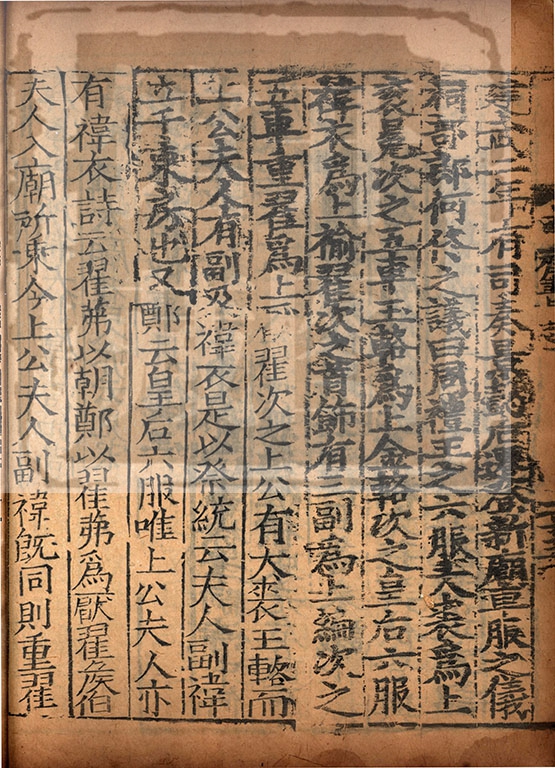 建武二年有司奏景懿后遷登新廟車服之儀
祠部郎何佟之議曰周禮王之六服大裘爲上
衮冕次之五車玉輅爲上金輅次之皇后六服
褘衣爲上褕翟次之首飾有三副爲上編次之
五車重翟爲上 翟次之上公有大裘玉輅而
上公夫人有副及褘衣是以祭統云夫人副褘
立于東房也又鄭云皇后六服唯上公夫人亦
有褘衣詩云翟茀以朝鄭以翟茀爲厭翟侯伯
夫人入廟所乗今上公夫人副褘既同則重翟